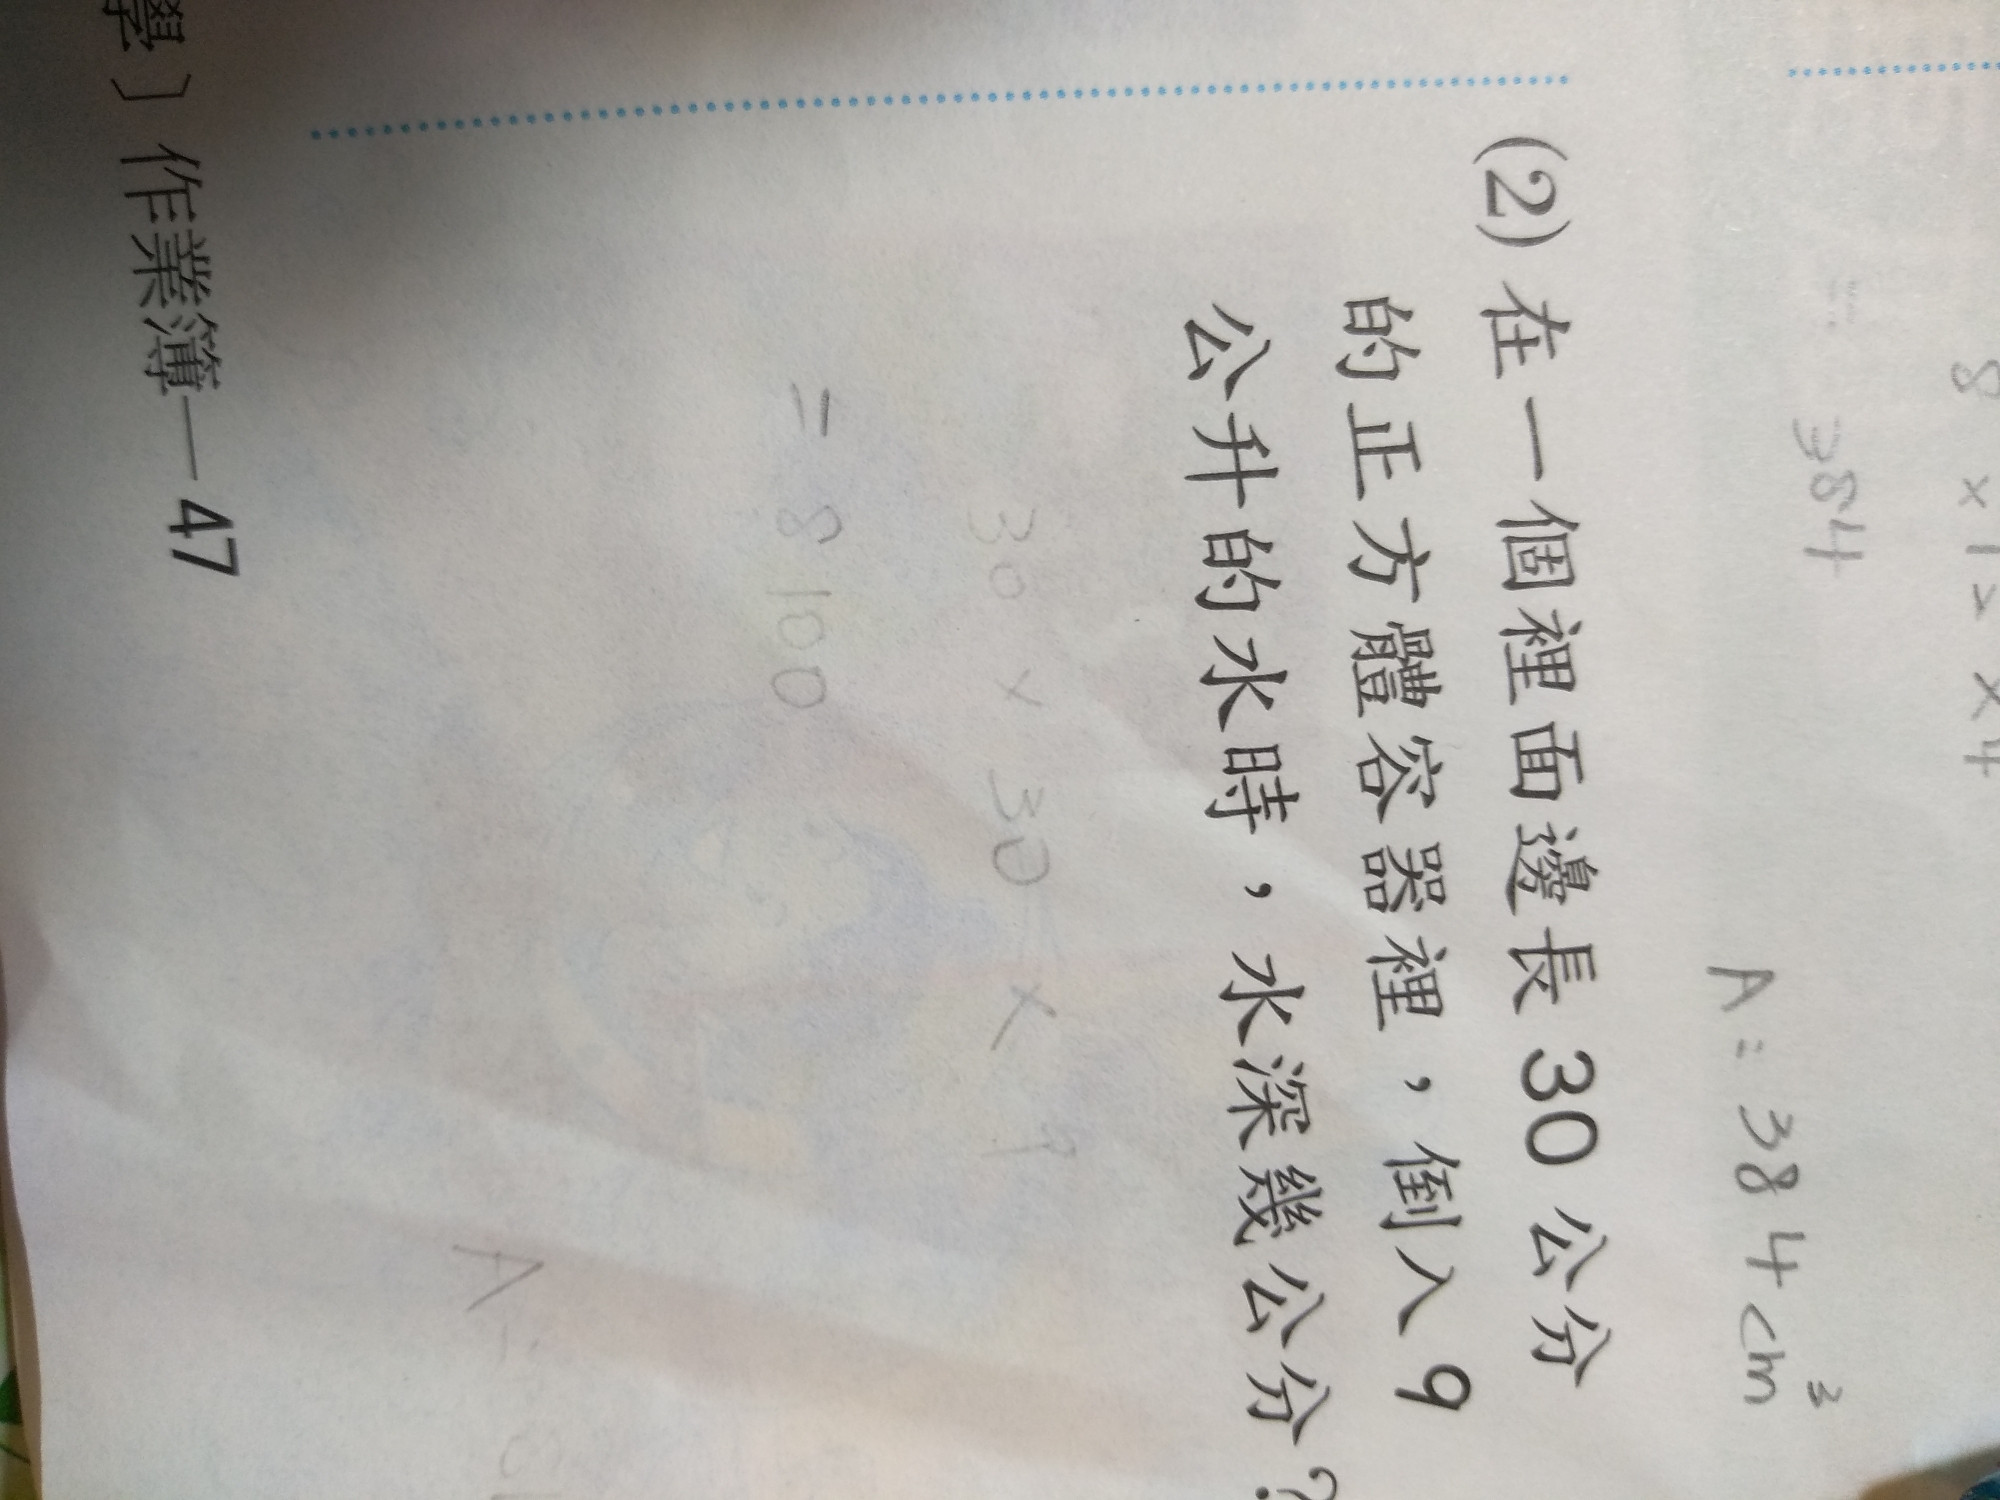 8 × 12 × 4
384
A: 384 cm³
(2) 在一個裡面邊長 30 公分
的正方體容器裡，倒入 9
公升的水時，水深幾公分？
30 × 30 × 9
= 8100
A:
學〕作業簿—47